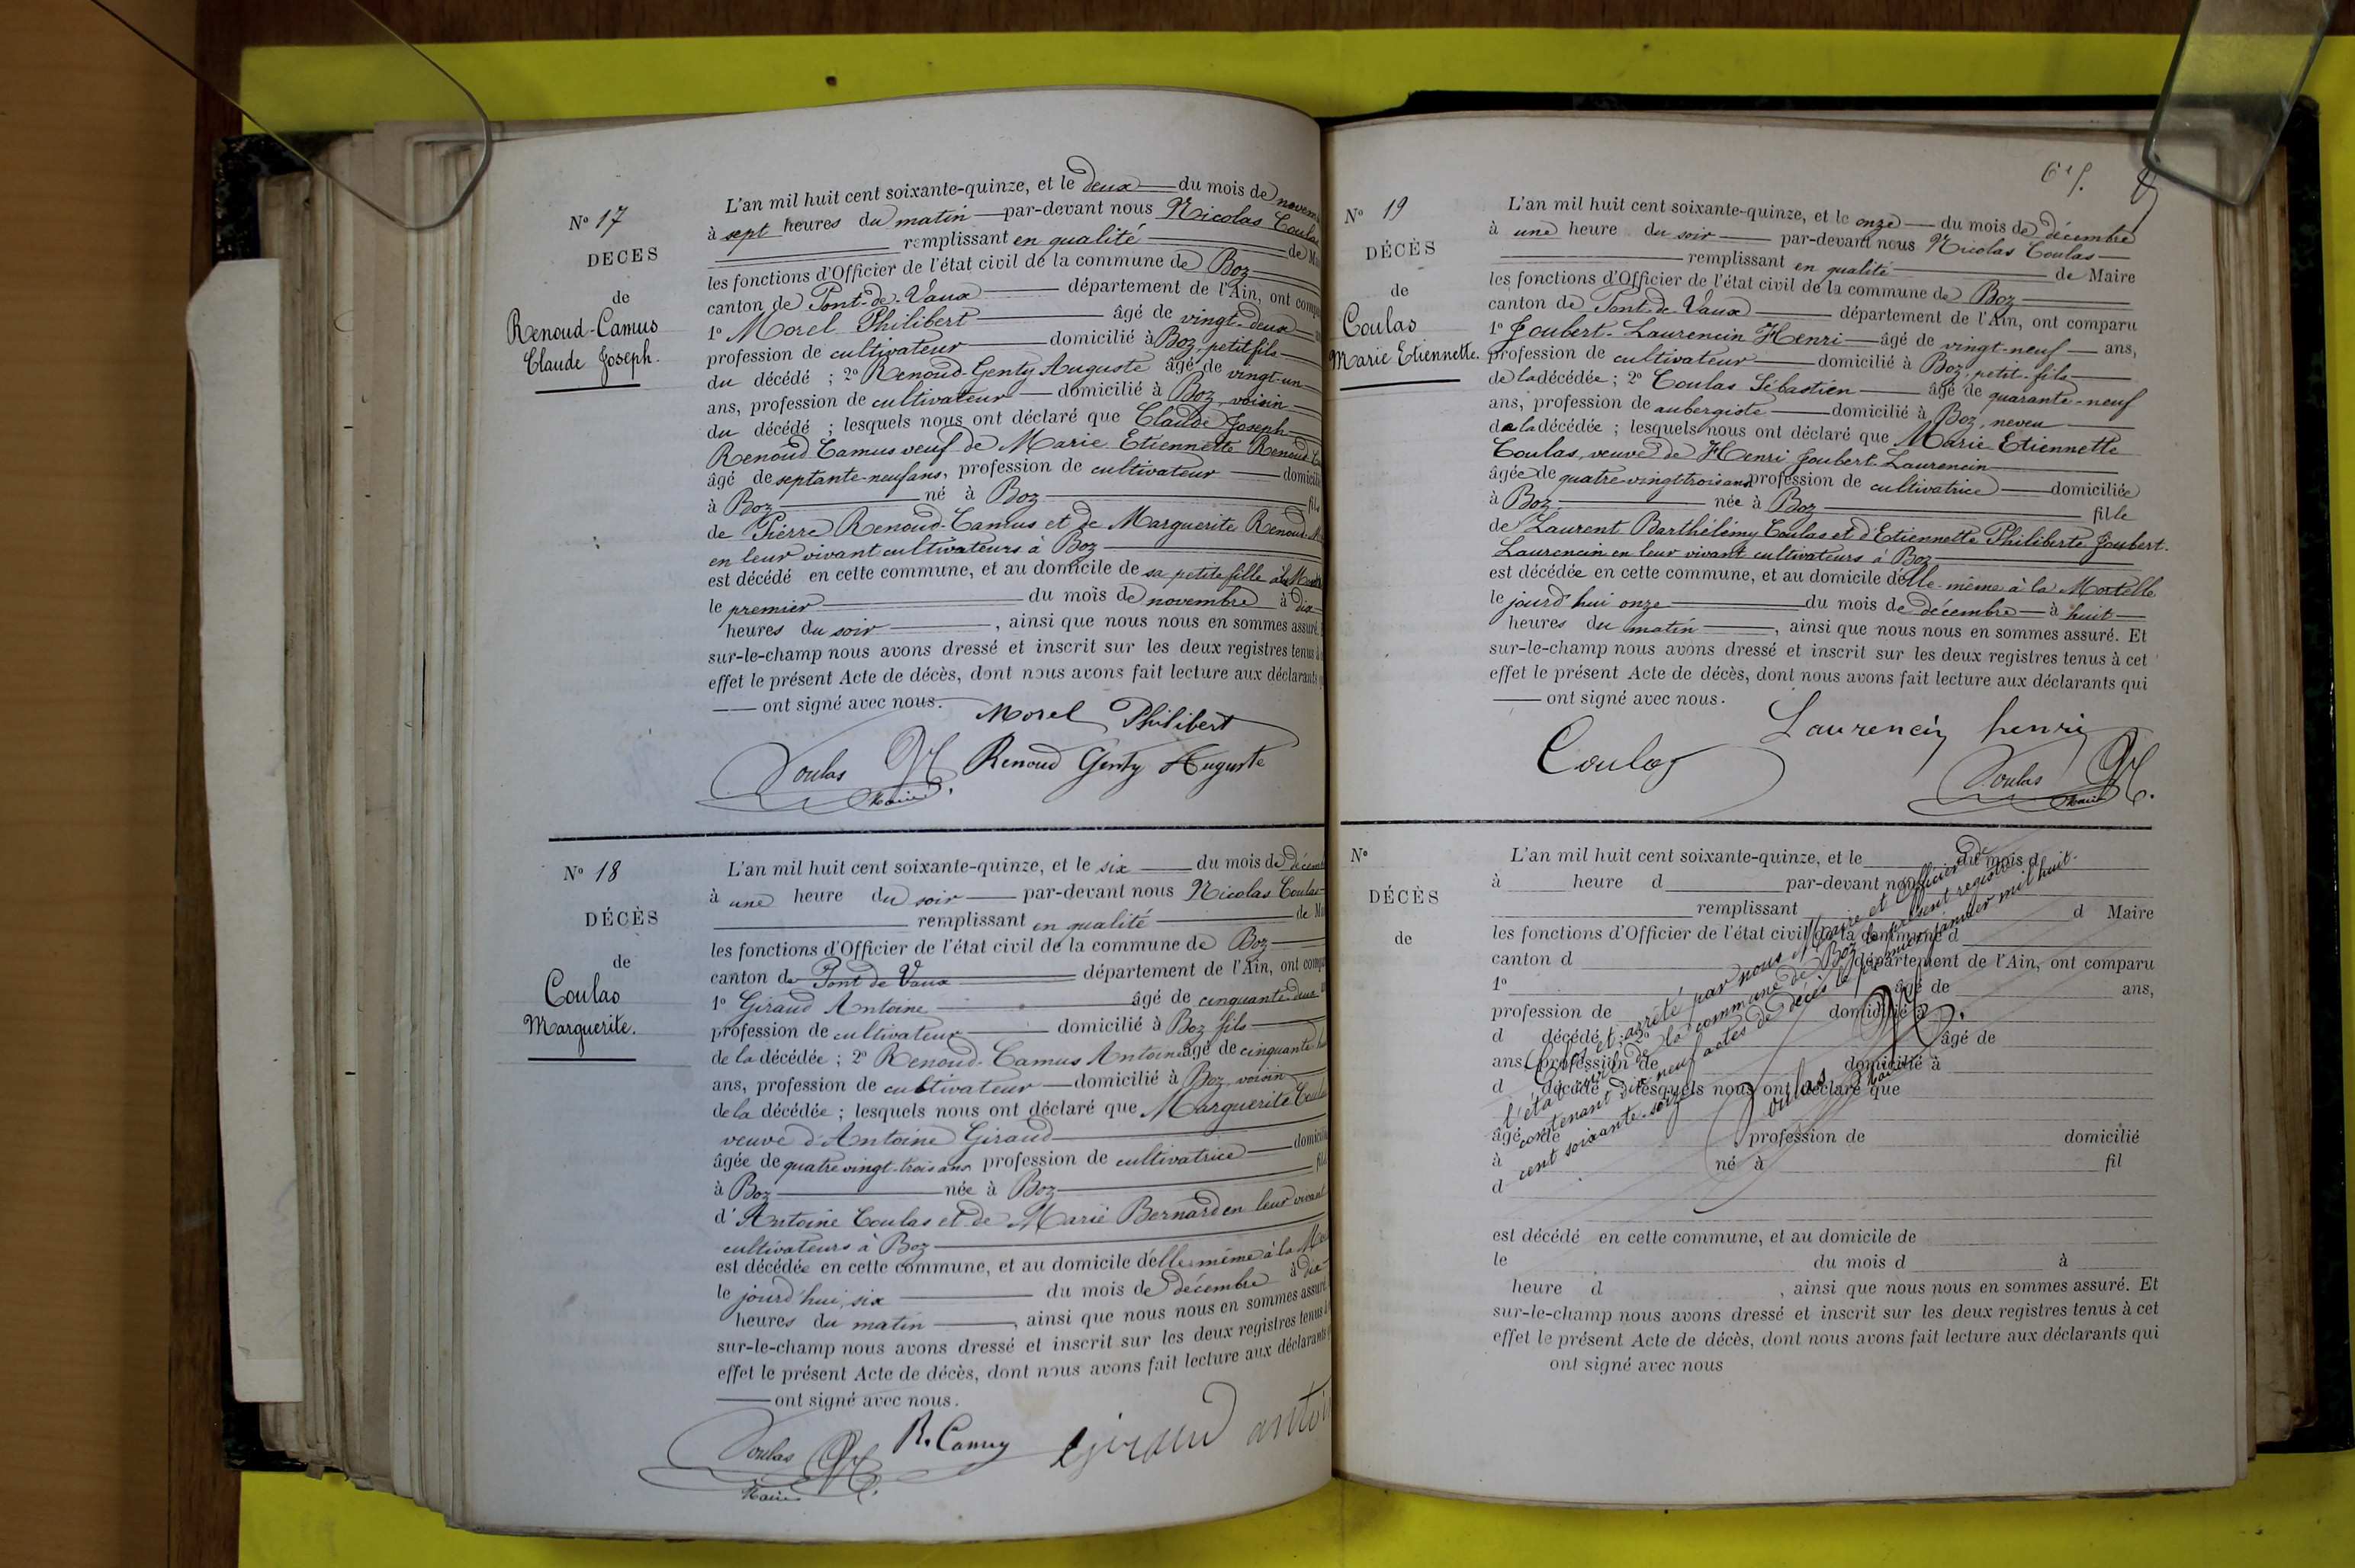 N° 17
DECES
de
Renoud-Camus
Claude Joseph.
L'an mil huit cent soixante-quinze, et le deux du mois de novem
à sept heures du matin par-devant nous Nicolas Coulas
remplissant en qualité de
les fonctions d'Officier de l'état civil de la commune de Boz
canton de Pont-de-Vaux département de l'Ain, ont
1° Morel Philibert âgé de vingt-deux
profession de cultivateur domicilié à Boz, petit fils
du décédé ; 2° Renoud-Genty Auguste âgé de vingt-un
ans, profession de cultivateur domicilié à Boz, voisin
du décédé ; lesquels nous ont déclaré que Claude Joseph
Renoud Camus veuf de Marie Etiennette Renoud
âgé de septante-neuf ans, profession de cultivateur
à Boz né à Boz
de Pierre Renoud-Camus et de Marguerite Renoud
en leur vivant cultivateurs à Boz
est décédé en cette commune, et au domicile de sa petite fille
le premier du mois de novembre à dix
heures du soir , ainsi que nous nous en sommes assuré.
sur-le-champ nous avons dressé et inscrit sur les deux registres tenus
effet le présent Acte de décès, dont nous avons fait lecture aux déclarants
ont signé avec nous.
Morel Philibert
Coulas Renoud Genty Auguste
Maire
N° 18
DÉCÈS
de
Coulas
Marguerite.
L'an mil huit cent soixante-quinze, et le six du mois de
à une heure du soir par-devant nous Nicolas Coulas
remplissant en qualité de
les fonctions d'Officier de l'état civil de la commune de Boz
canton de Pont de Vaux département de l'Ain, ont
1° Giraud Antoine âgé de cinquante deux
profession de cultivateur domicilié à Boz fils
de la décédée ; 2° Renoud-Camus Antoine âgé de cinquante
ans, profession de cultivateur domicilié à Boz, voisin
de la décédée ; lesquels nous ont déclaré que Marguerite
veuve d'Antoine Giraud
âgée de quatre vingt-trois ans profession de cultivatrice
à Boz née à Boz
d'Antoine Coulas et de Marie Bernard en leur vivant
cultivateurs à Boz
est décédée en cette commune, et au domicile d'elle même à la
le jourd'hui, six du mois de décembre à dix
heures du matin , ainsi que nous nous en sommes assuré.
sur-le-champ nous avons dressé et inscrit sur les deux registres tenus
effet le présent Acte de décès, dont nous avons fait lecture aux déclarants
ont signé avec nous.
Coulas R. Camus Giraud
Maire
N° 19
DÉCÈS
de
Coulas
Marie Etiennette.
L'an mil huit cent soixante-quinze, et le onze du mois de décembre
à une heure du soir par-devant nous Nicolas Coulas
remplissant en qualité de Maire
les fonctions d'Officier de l'état civil de la commune de Boz
canton de Pont-de-Vaux département de l'Ain, ont comparu
1° Joubert-Laurencin Henri âgé de vingt-neuf ans,
profession de cultivateur domicilié à Boz, petit-fils
de la décédée ; 2° Coulas Sébastien âgé de quarante-neuf
ans, profession de aubergiste domicilié à Boz, neveu
de la décédée ; lesquels nous ont déclaré que Marie Etiennette
Coulas, veuve de Henri Joubert-Laurencin
âgée de quatre-vingt-trois ans profession de cultivatrice domiciliée
à Boz née à Boz fille
de Laurent Barthélémy Coulas et d'Etiennette Philiberte Joubert-
Laurencin en leur vivant cultivateurs à Boz
est décédée en cette commune, et au domicile d'elle-même à la Mortelle
le jourd'hui onze du mois de décembre à huit
heures du matin , ainsi que nous nous en sommes assuré. Et
sur-le-champ nous avons dressé et inscrit sur les deux registres tenus à cet
effet le présent Acte de décès, dont nous avons fait lecture aux déclarants qui
ont signé avec nous.
Laurencin henri
Coulas
Coulas
Maire
N°
DÉCÈS
de
L'an mil huit cent soixante-quinze, et le du mois d
à heure d par-devant nous
remplissant d Maire
les fonctions d'Officier de l'état civil de la commune d
canton d département de l'Ain, ont comparu
1° âgé de ans,
profession de domicilié à
d décédé ; 2° âgé de
ans, profession de domicilié à
d décédé ; lesquels nous ont déclaré que
âgé de profession de domicilié
à né à fil
d
est décédé en cette commune, et au domicile de
le du mois d à
heure d , ainsi que nous nous en sommes assuré. Et
sur-le-champ nous avons dressé et inscrit sur les deux registres tenus à cet
effet le présent Acte de décès, dont nous avons fait lecture aux déclarants qui
ont signé avec nous
Clos et arrêté par nous Maire et Officier de
l'état civil de la commune de Boz le présent registre
contenant dix neuf actes de décès le premier janvier mil huit-
cent soixante-seize
Coulas
Maire